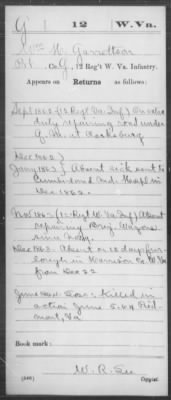 G | 12 | W. Va.
Wm H. Garrettson
Pvt, Co. G, 12 Reg't W. Va. Infantry.
Appears on Returns as follows:
Sept 1862 (12 Regt Va. Inf) On extra
duty repairing road under
Q.M. at Clarksburg
Dec 1862 }
Jany 1863 } Absent sick sent to
Cumberland Md. Hosp'l in
Dec 1862.
Nov 1863 (12 Regt W. Va. Inf) Absent
repairing Brig. Wagons
since
Dec 1863. Absent on 15 day fur-
lough in Harrison Co. W. Va
from Dec 22
June 1864. Loss: Killed in
action June 5. 64 Pied-
mont, Va
Book mark:
(546)
W. R. Lee
Copyist.